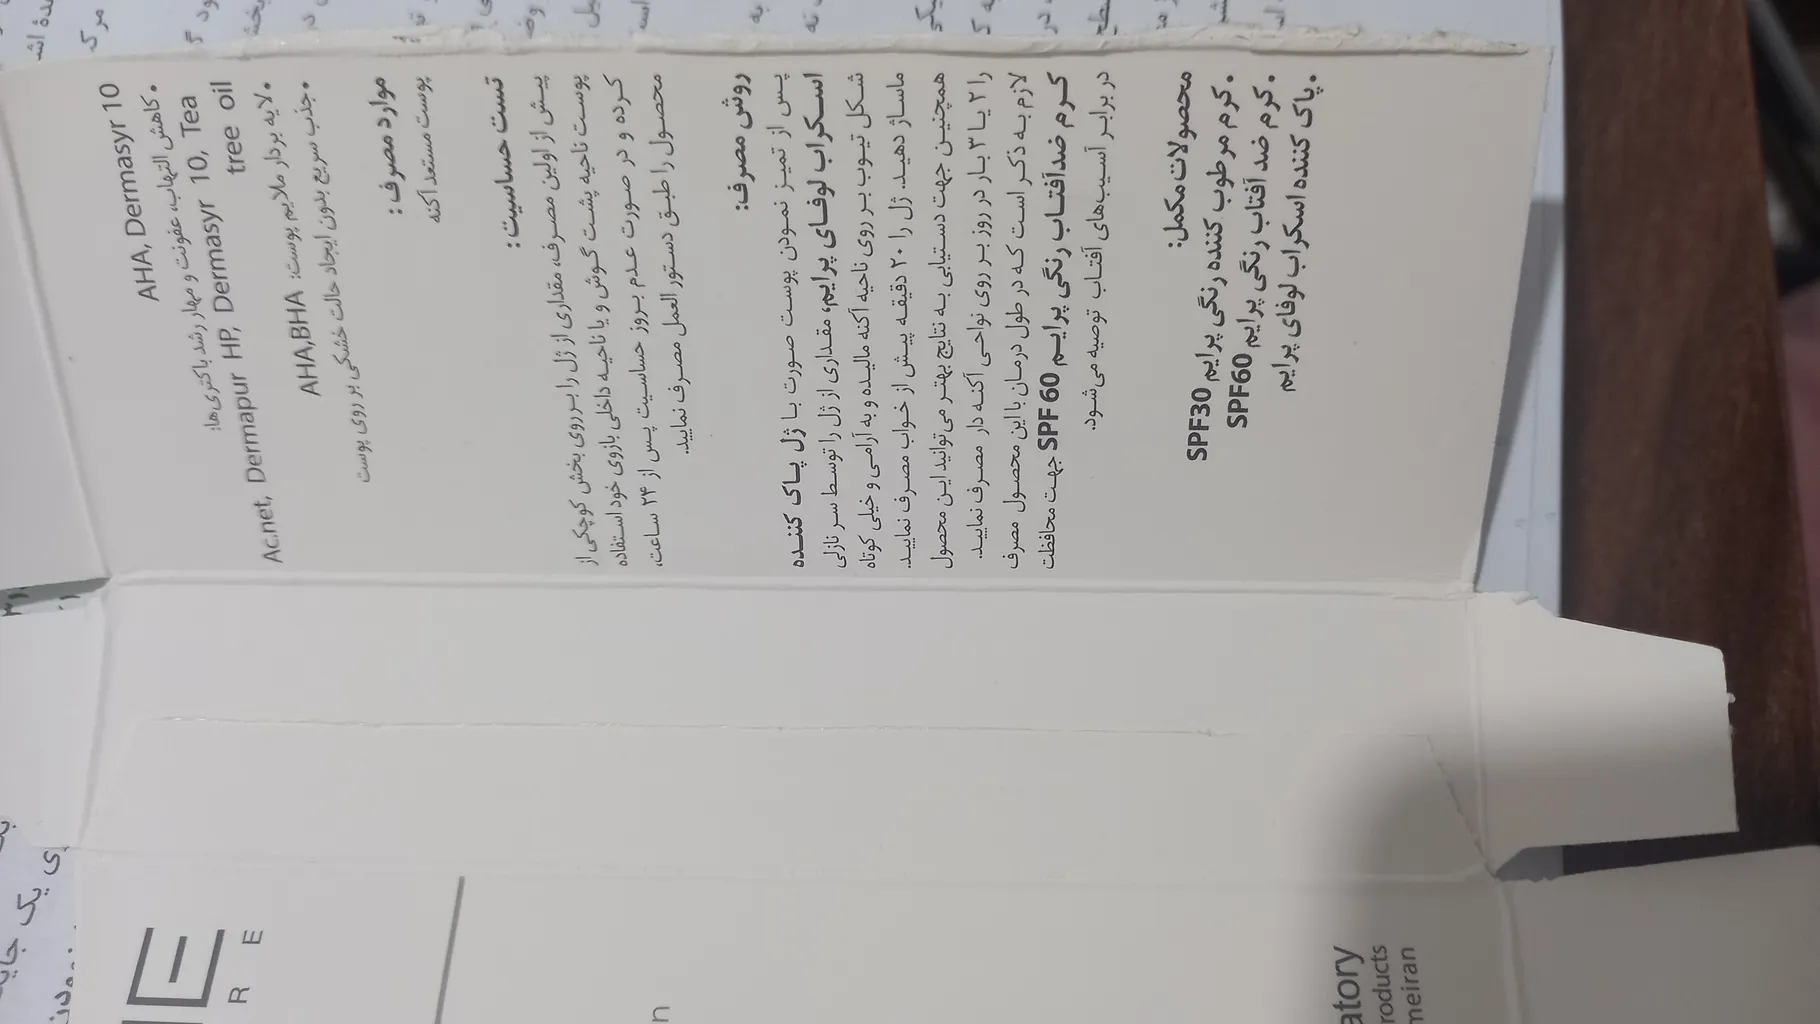 AHA, Dermasyr 10
•کاهش التهاب، عفونت و مهار رشد باکتری‌ها:
Ac.net, Dermapur HP, Dermasyr 10, Tea
tree oil
•لایه بردار ملایم پوست: AHA,BHA
•جذب سریع بدون ایجاد حالت خشکی بر روی پوست
موارد مصرف:
پوست مستعد آکنه
تست حساسیت:
پیش از اولین مصرف، مقداری از ژل را بر روی بخش کوچکی از
پوست ناحیه پشت گوش و یا ناحیه داخلی بازوی خود استفاده
کرده و در صورت عدم بروز حساسیت پس از ۲۴ ساعت،
محصول را طبق دستورالعمل مصرف نمایید.
روش مصرف:
پس از تمیز نمودن پوست صورت با ژل پاک کننده
اسکراب لوفای پرایم، مقداری از ژل را توسط سر نازلی
شکل تیوب بر روی ناحیه آکنه مالیده و به آرامی و خیلی کوتاه
ماساژ دهید. ژل را ۲۰ دقیقه پیش از خواب مصرف نمایید.
همچنین جهت دستیابی به نتایج بهتر می‌توانید این محصول
را ۲ یا ۳ بار در روز بر روی نواحی آکنه دار مصرف نمایید.
لازم به ذکر است که در طول درمان با این محصول مصرف
کرم ضدآفتاب رنگی پرایم SPF 60 جهت محافظت
در برابر آسیب‌های آفتاب توصیه می‌شود.
محصولات مکمل:
•کرم مرطوب کننده رنگی پرایم SPF30
•کرم ضد آفتاب رنگی پرایم SPF60
•پاک کننده اسکراب لوفای پرایم
E
R E
n
atory
roducts
meiran
ی یک جای